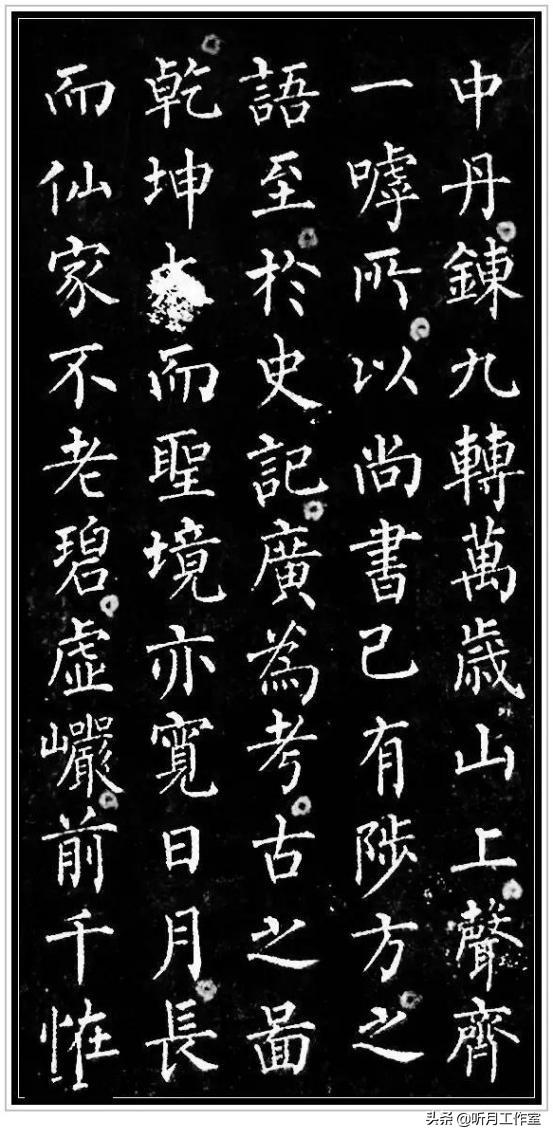 申丹鍊九轉萬歲山上聲齊
一嘑所以尚書已有陟方之
語至於史記廣為考古之啚
乾坤而聖境亦寬日月長
而仙家不老碧虛巖前千恠
头条 @听月工作室